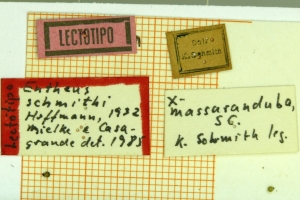 LECTÓTIPO
Lectotipo
Entheus
schmithi
Hoffmann, 1932
Mielke e Casa-
grande det. 1985
X-
massaranduba,
SC.
K. Schmith leg.